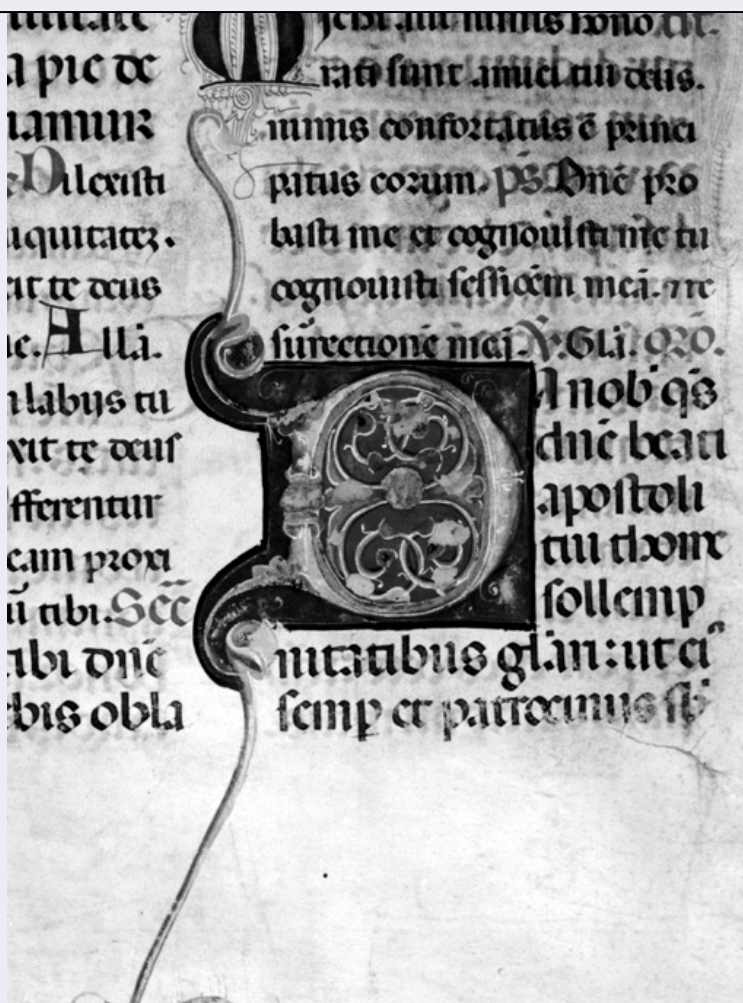 a pie de
amur
Dilexisti
iquitatez.
it te deus
Allā.
labijs tu
xit te deus
fferentur
eam proxi
ū tibi. Scē
tibi dnē
ebis obla
rati sunt amici tui deus.
nimis confortatus ē princi
patus eorum. ps. Dnē pro
basti me et cognouisti me tu
cognouisti sessioēm meā. ⁊ re
surrectionē meā. V. Glā. oro.
D A nob qs
dnē beati
apostoli
tui thome
sollemp
nitatibus glari: ut ei
semp et patrocinijs sb